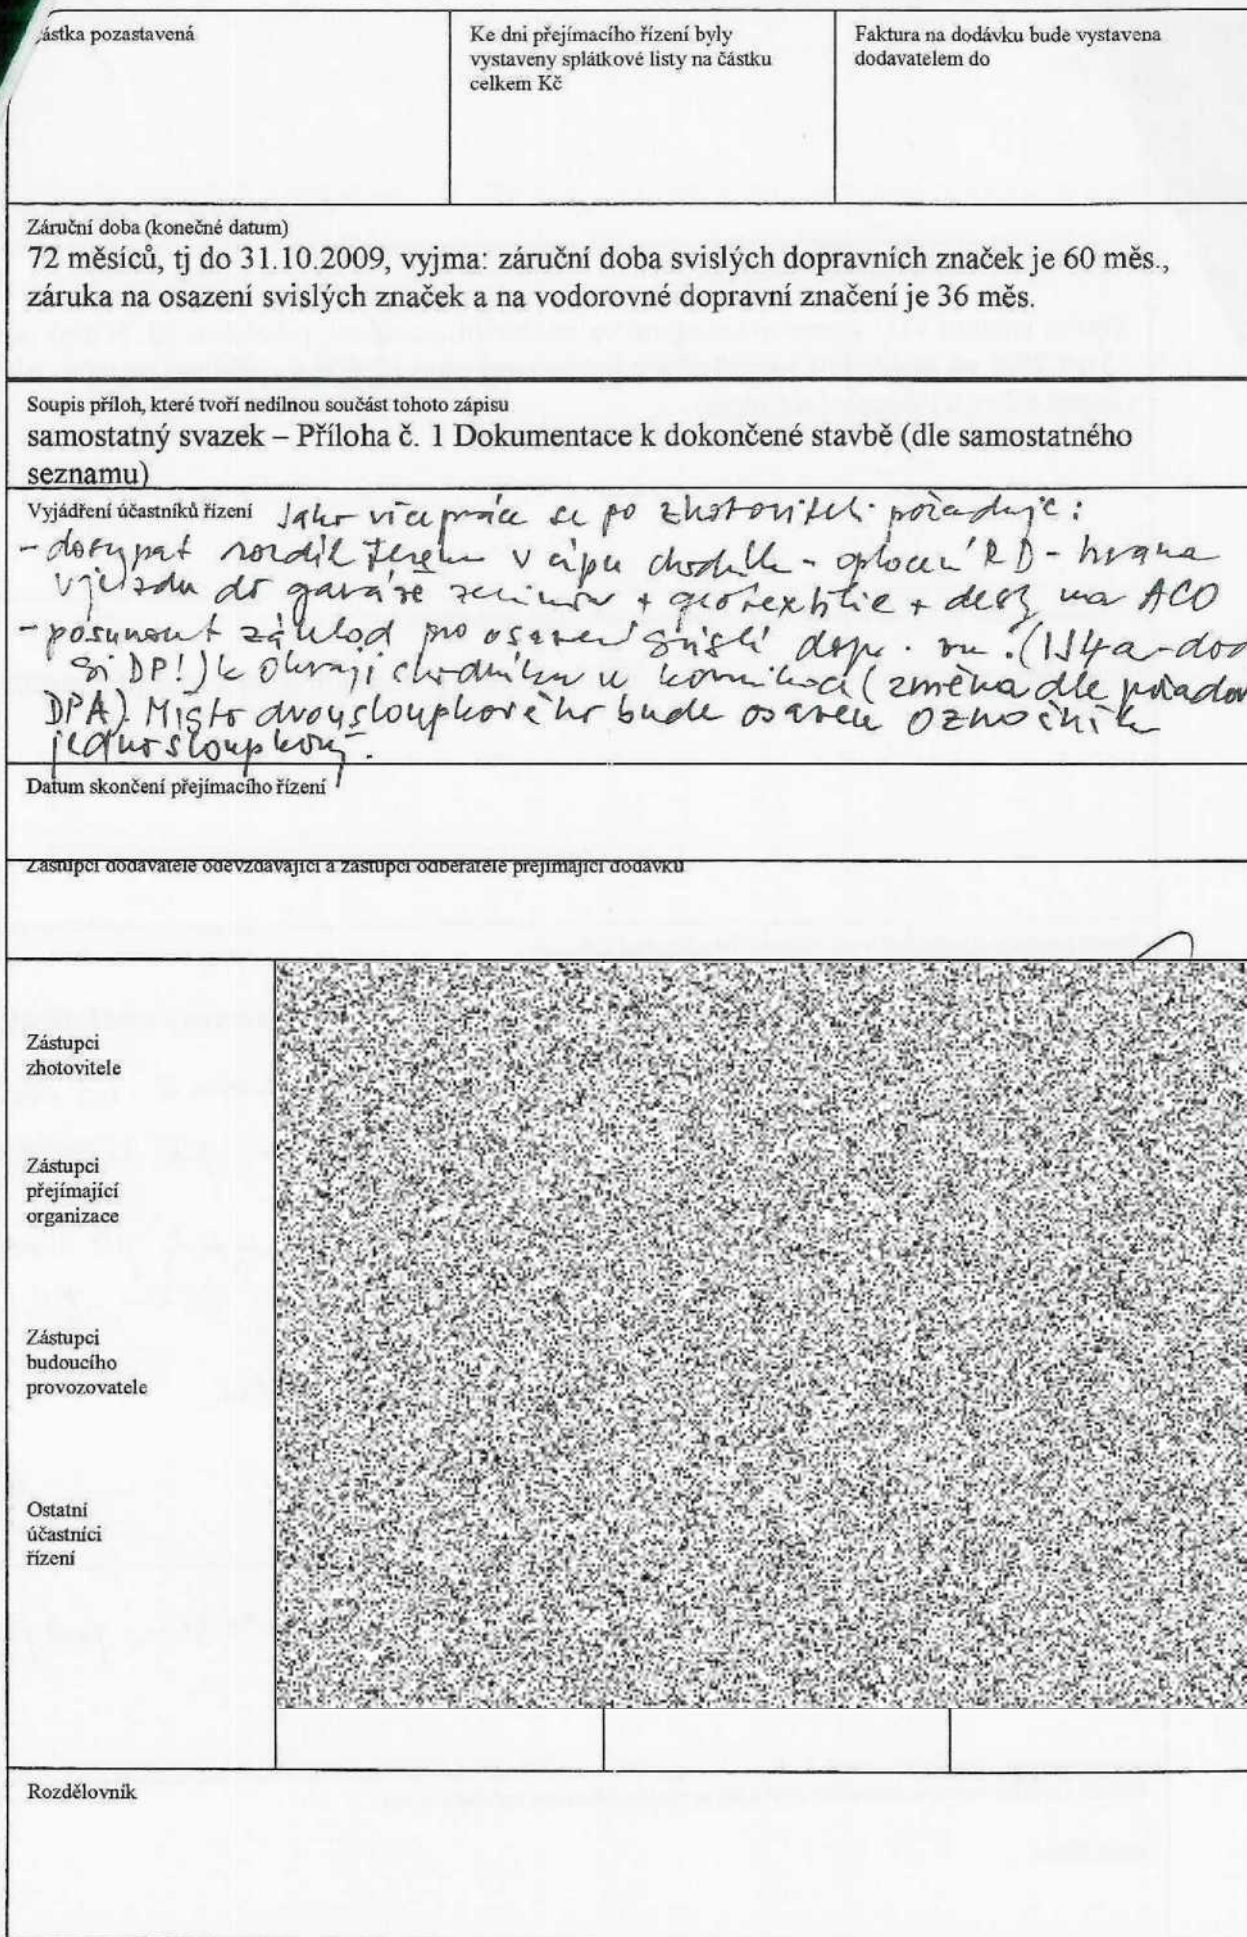 ástka pozastavená
Ke dni přejímacího řízení byly
vystaveny splátkové listy na částku
celkem Kč
Faktura na dodávku bude vystavena
dodavatelem do
Záruční doba (konečné datum)
72 měsíců, tj do 31.10.2009, vyjma: záruční doba svislých dopravních značek je 60 měs.,
záruka na osazení svislých značek a na vodorovné dopravní značení je 36 měs.
Soupis příloh, které tvoří nedílnou součást tohoto zápisu
samostatný svazek – Příloha č. 1 Dokumentace k dokončené stavbě (dle samostatného
seznamu)
Vyjádření účastníků řízení Jako vícepráce se po zhotoviteli požaduje:
- dosypat rozdíl terénu v cípu chodník - oplocení RD - hrana
vjezdu do garáže zeminou + geotextilie + na ACO
- posunout základ pro osazení dopr. zn. k okraji chodníku u (změna dle
DPA). Místo dvousloupkového bude osazen označník
jednosloupkový.
Datum skončení přejímacího řízení
Zástupci dodavatele odevzdávající a zástupci odběratele přejímající dodávku
Zástupci
zhotovitele
Zástupci
přejímající
organizace
Zástupci
budoucího
provozovatele
Ostatní
účastníci
řízení
Rozdělovník